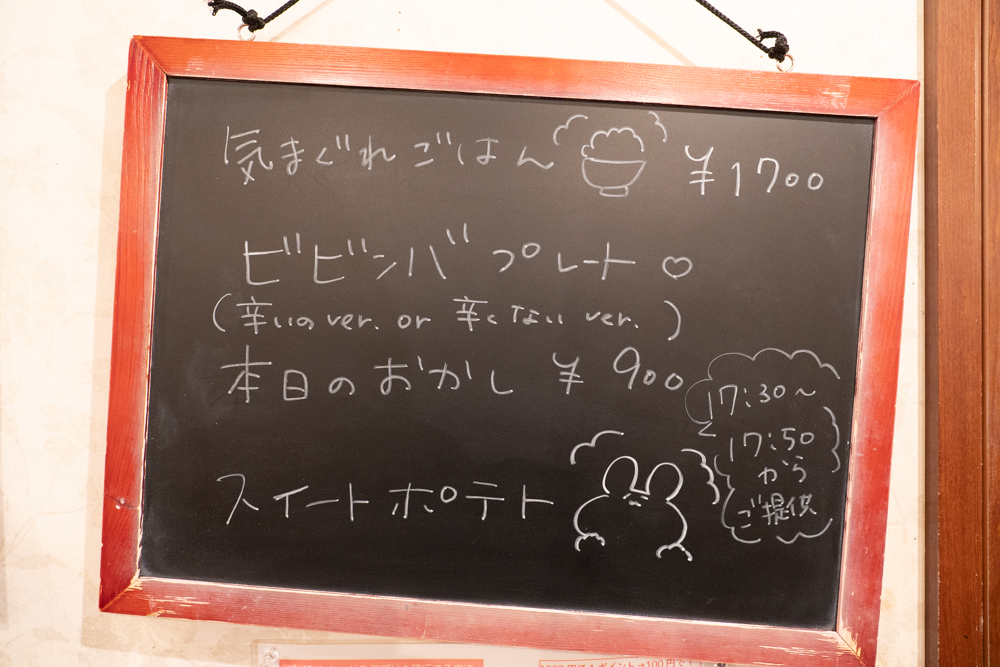 気まぐれごはん ¥1700
ビビンバ プレート♡
(辛いの ver. or 辛くない ver.)
本日のおかし ¥900
スイートポテト
17:30~
17:50
から
ご提供